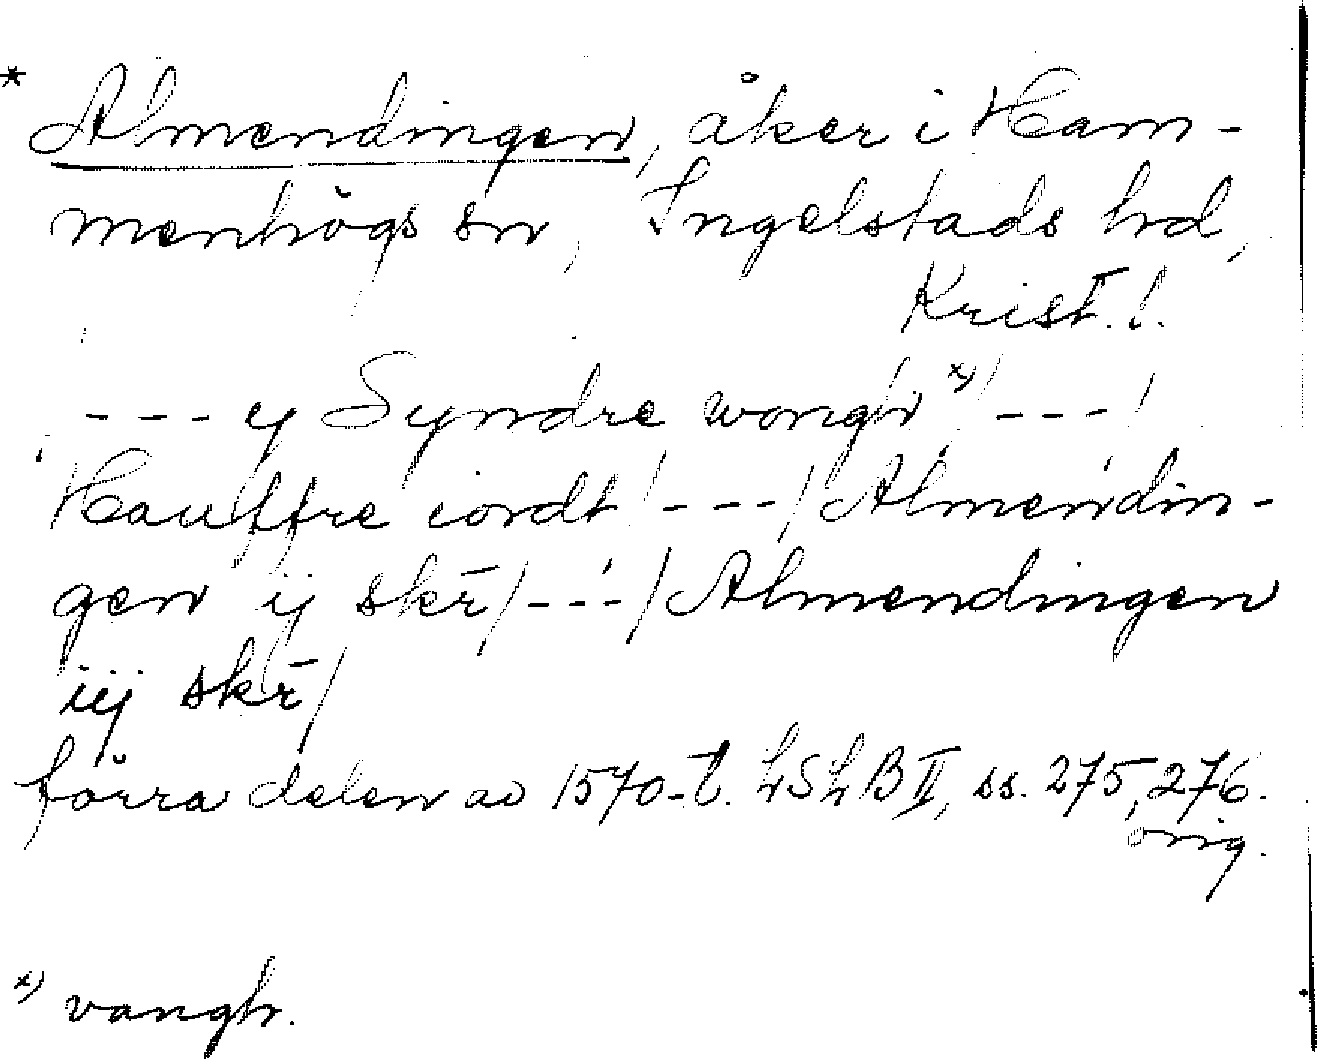 * Almendingen, åker i Ham-
menhögs sn, Ingelstads hd,
Krist. l.
--- y Syndre wongh x) / --- /
Hauffre iordt / --- / Almendin-
gen ij skr̄ / --- / Almendingen
iij skr̄ /
förra delen av 1570-t. LSLB II, ss. 275, 276.
orig.
x) vangh.